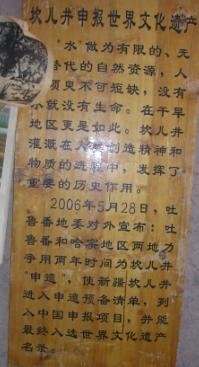 坎儿井申报世界文化遗产
"水"做为有限的、无
代的自然资源，人
须臾不可短缺，没有
水就没有生命。在干旱
地区更是如此。坎儿井
灌溉在人类创造精神和
物质的进程中，发挥了
重要的历史作用。
2006年5月28日，吐
鲁番地委对外宣布：吐
鲁番和哈密地区两地力
争用两年时间为坎儿井
"申遗"，使新疆坎儿井
进入申遗预备清单，列
入中国申报项目，并能
最终入选世界文化遗产
名录。